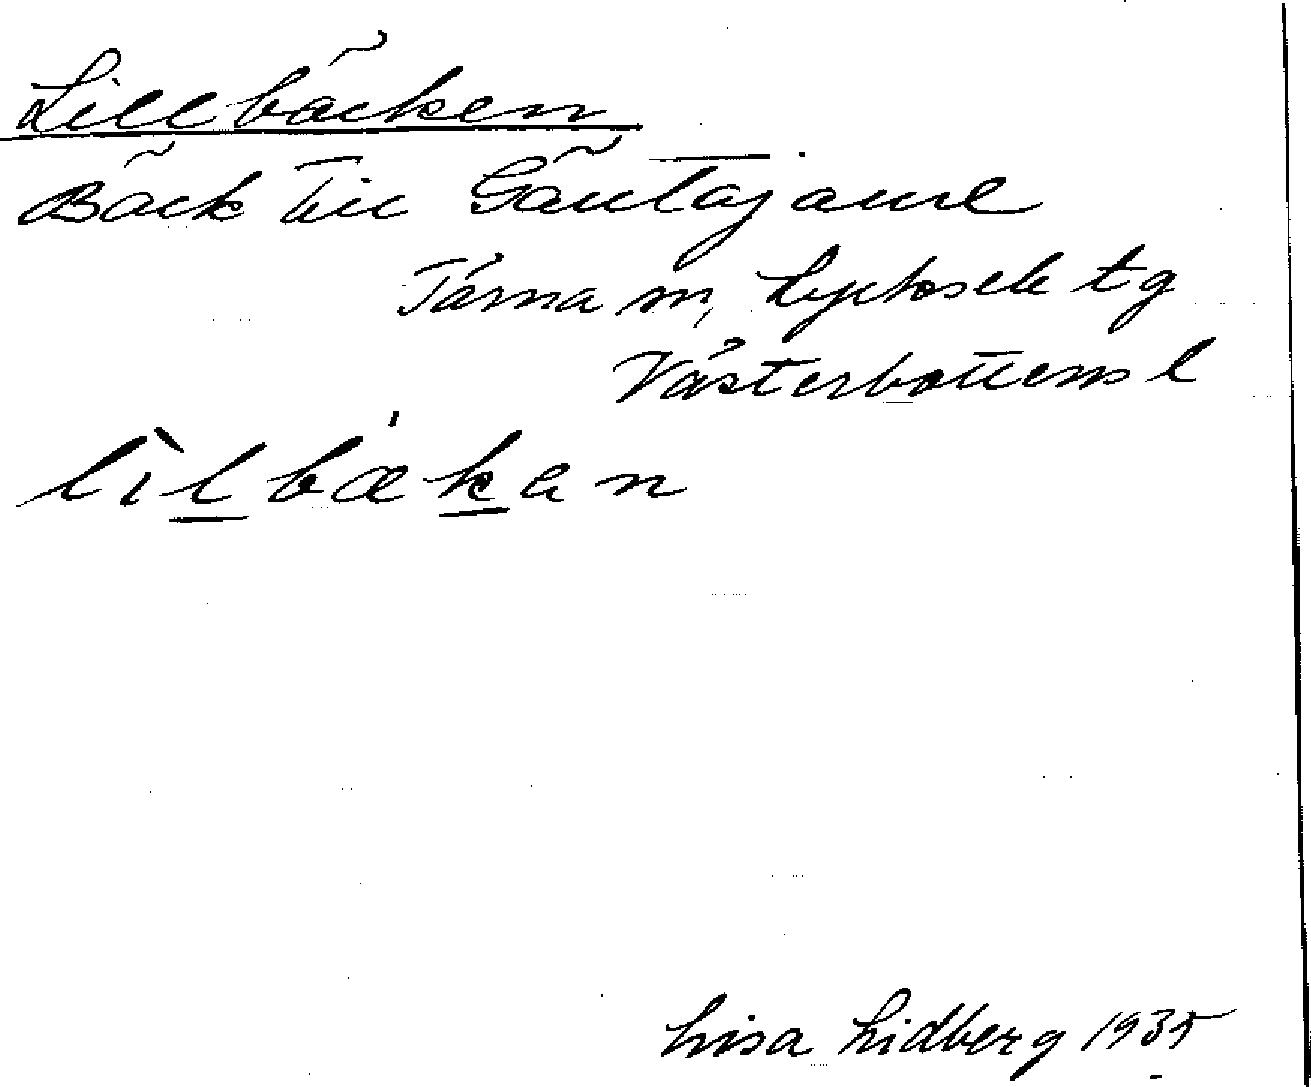 Lillbäcken
Bäck till Gäutajaure
Tärna sn, Lycksele tg
Västerbottens l
lìlbækan
Lisa Lidberg 1935